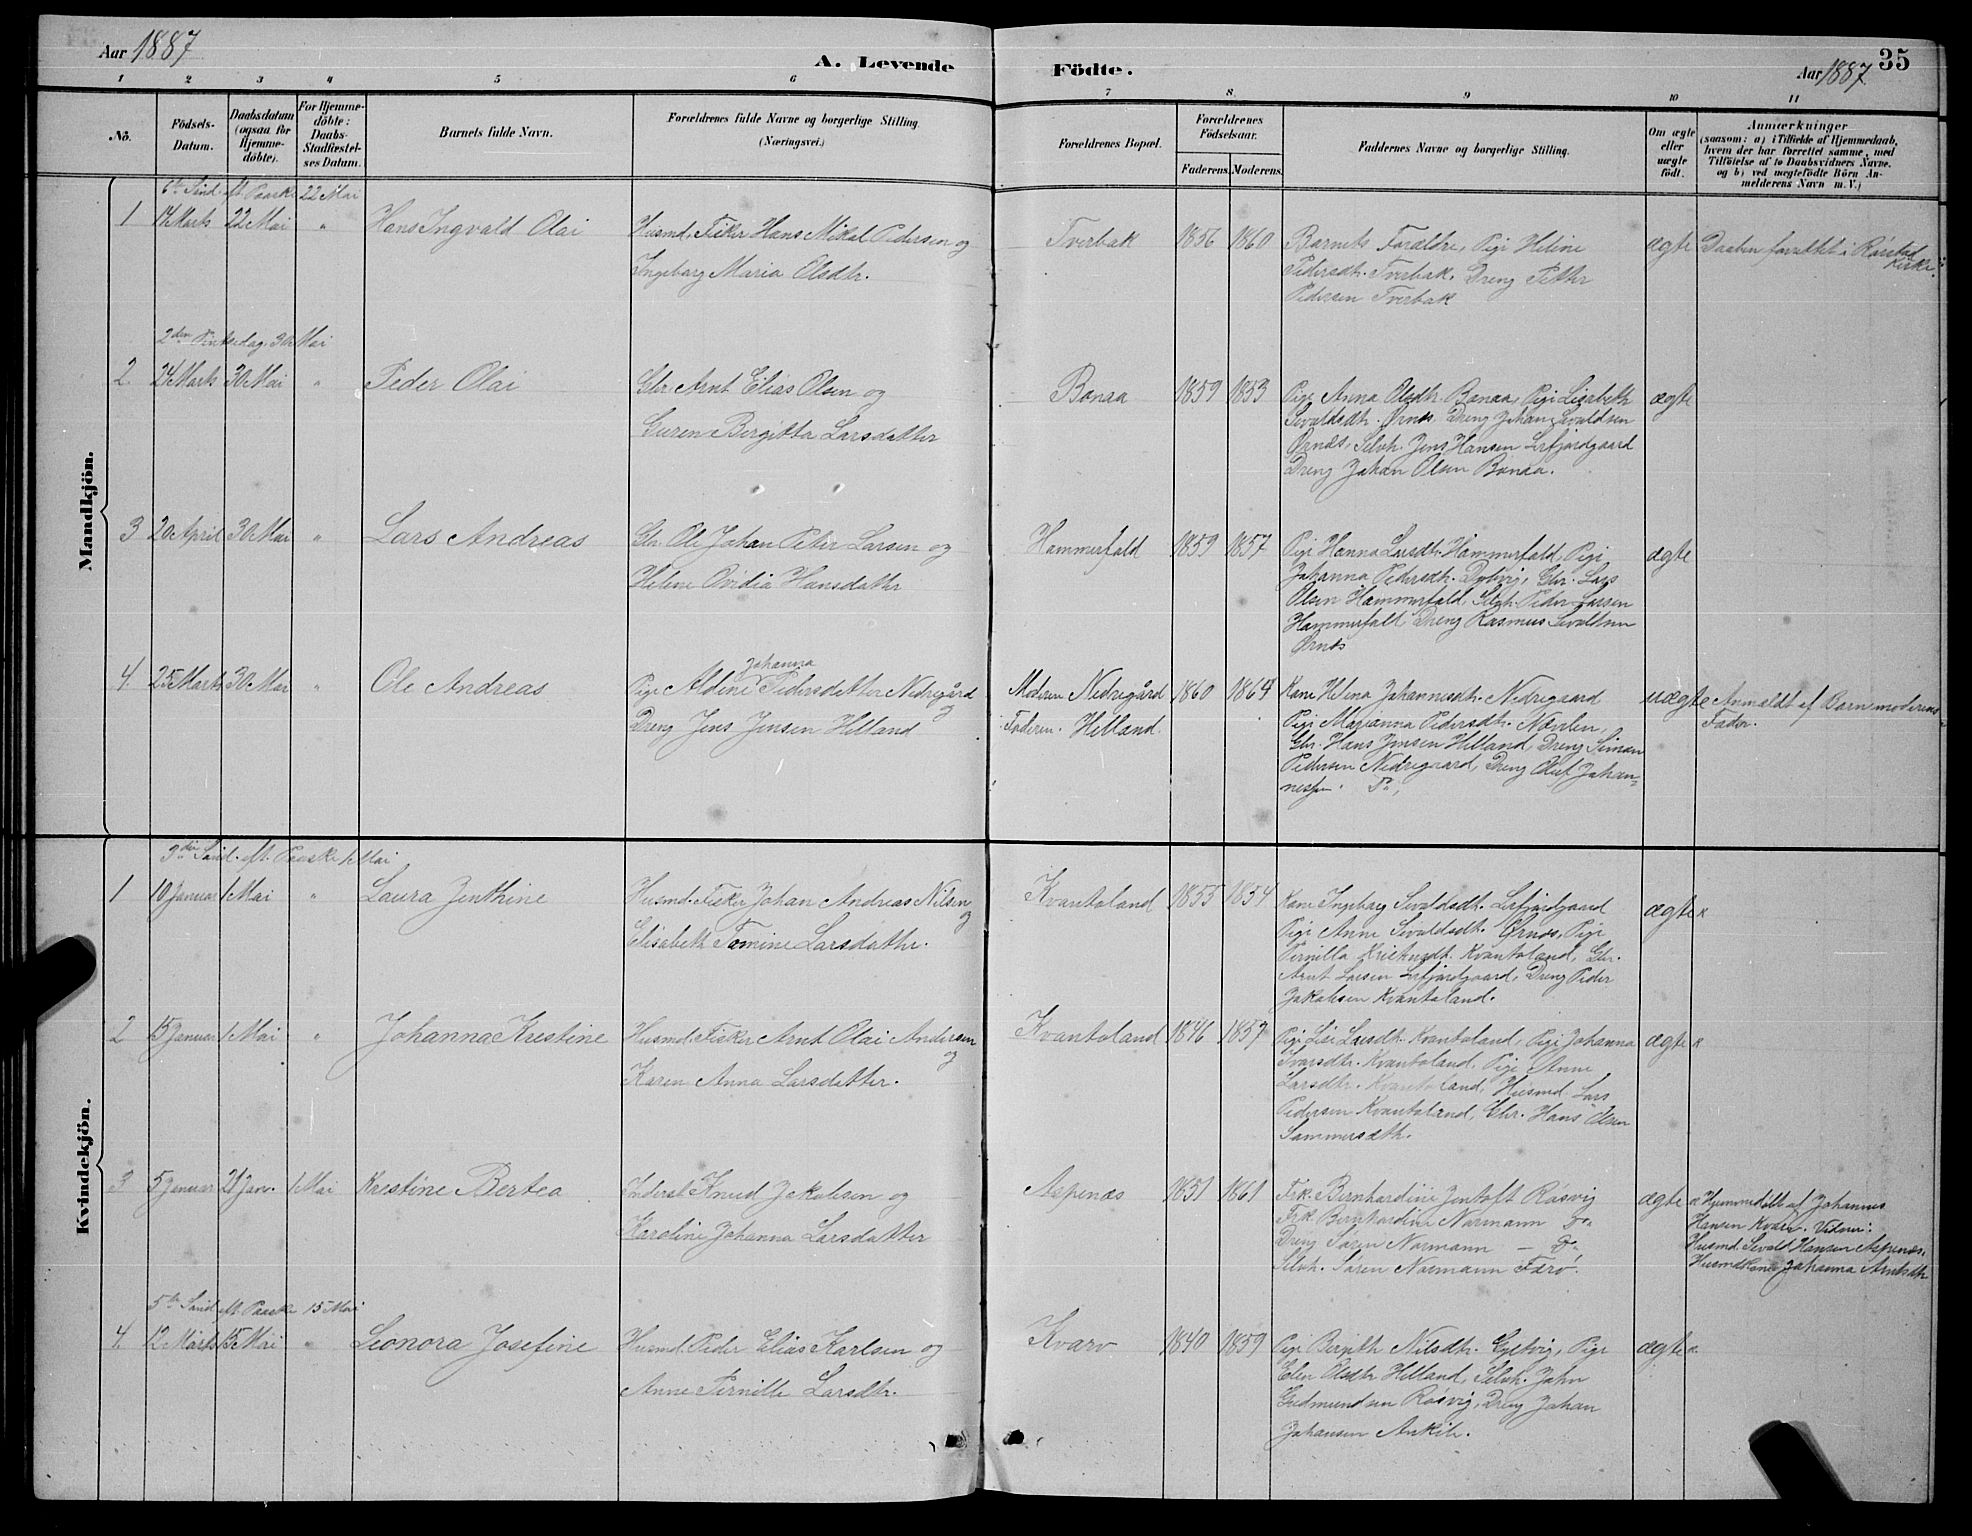 Aar 1887
A. Levende
Födte.
Aar 1887
35
1 2 3 4 5 6 7 8. 9 10 11
No.
Födsels-
Datum.
Daabsdatum
(ogsaa for
Hjemme-
döbte).
For Hjemme-
döbte:
Daabs-
Stadfæstel-
ses Datum.
Barnets fulde Navn.
Forældrenes fulde Navne og borgerlige Stilling.
(Næringsvei.)
Forældrenes Bopæl.
Forældrenes
Födselsaar.
Faderens. Moderens.
Faddernes Navne og borgerlige Stilling.
Om ægte
eller
uægte
födt.
Anmærkninger
(saasom: a) i Tilfælde af Hjemmedaab,
hvem der har forrettet samme, med
Tilföielse af to Daabsvidners Navne,
og b) ved uægtefödte Börn An-
melderens Navn m. V.)
Mandkjön.
6te Sønd. eft. Paaske 22 Mai
1 14 Marts 22 Mai " Hans Ingvald Olai
Husmd. Fisker Hans Mikal Pedersen og
Ingeborg Maria Olsdtr.
Tverbak 1856 1860
Barnets Forældre, Pige Heline
Pedersdtr. Tverbak, Dreng Petter
Pedersen Tverbak
ægte
Daaben forrettet i Rørstad
Kirke.
2den Pintsedag, 30 Mai
2 24 Marts 30 Mai " Peder Olai
Gbr. Arnt Elias Olsen og
Guren Bergitta Larsdatter
Bonaa 1859 1853
Pige Anna Olsdtr. Bonaa, Pige Lisabeth
Sivaldsdtr. Ørnes, Dreng Johan Sivaldsen
Ørnes, Selvh. Jens Hansen Lefjordgaard
Dreng Johan Olsen Bonaa.
ægte
3 20 April 30 Mai " Lars Andreas
Gbr. Ole Johan Peter Larsen og
Helene Ovidia Hansdatter
Hammerfald 1859 1857
Pige Hanna Larsdtr. Hammerfald, Pige
Johanna Pedersdtr. Dybvig, Gbr. Lars
Olsen Hammerfald, Selvh. Peder Larsen
Hammerfald, Dreng Rasmus Sivaldsen
Ørnes
ægte
4 25 Marts 30 Mai " Ole Andreas
Johanna
Pige Aldine Pedersdatter Nedregård
og
Dreng Jens Jensen Helland
Moderen Nedregård 1860 1864
Faderen. Helland.
Kone Helena Johannesdtr. Nedregaard
Pige Marianna Pedersdtr. Nævelen,
Gbr. Hans Jensen Helland, Dreng Simon
Pedersen Nedregaard, Dreng Oluf Johan-
nessen Do,
uægte
Anmeldt af Barnemoderens
Fader.
Kvindekjön.
3die Sønd. eft. Paaske 1 Mai
1 10 Januar 1 Mai " Laura Jenthine
Husmd. Fisker Johan Andreas Nilsen
og
Elisabeth Tomine Larsdatter.
Kvantoland 1855 1854
Kone Ingeborg Sivaldsdtr. Lefjordgaard
Pige Anne Sivaldsdtr. Ørnes, Pige
Pernilla Kvantoland, Gbr.
Arnt Larsen Lefjordgaard, Dreng Peder
Jakobsen Kvantoland.
ægte
2 15 Januar 1 Mai " Johanna Krestine
Husmd. Fisker Arnt Olai Andersen
og
Karen Anna Larsdatter.
Kvantoland 1846 1857
Pige Lise Larsdtr. Kvantoland, Pige Johanna
Ivarsdtr. Kvantoland, Pige Anne
Larsdtr. Kvantoland, Husmd. Lars
Pedersen Kvantoland, Gbr. Hans Olsen
Sommersæth.
ægte
3 5 Januar 21 Janr. 1 Mai Krestine Bertea
Inderst Knud Jakobsen og
Karoline Johanna Larsdatter
Aspenæs 1851 1861
Frk. Bernhardine Jentoft Røsvig
Frk. Bernhardine Normann Do
Dreng Søren Normann — Do
Selvh. Søren Normann Færø.
ægte
Hjemmedøbt af Johannes
Hansen Kvarv. Vidner:
Husmd. Sivald Hansen Aspenæs,
Husmdkone Johanna Arntsdtr.
5te Sønd. eft. Paaske 15 Mai
4 12 Marts 15 Mai " Leonora Josefine
Husmd. Peder Elias Karlsen og
Anne Pernille Larsdtr.
Kvarv 1840 1859
Pige Bergith Nilsdtr. Gjelvig, Pige
Elen Olsdtr Helland, Selvh. John
Gudmundsen Røsvig, Dreng Johan
Johansen Ankile.
ægte